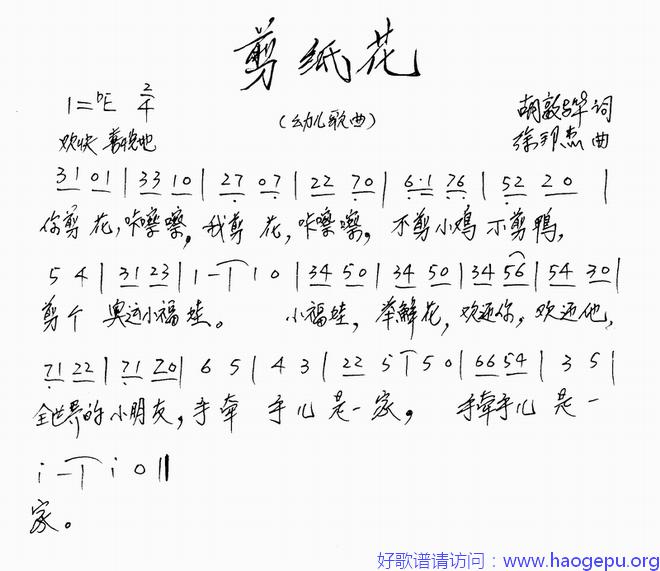 剪纸花
1=ᵇE 2/4
(幼儿歌曲)
胡敦骅 词
欢快 喜悦地
徐邦杰 曲
31 01 | 33 10 | 27 07 | 22 70 | 6·1 76 | 52 20 |
你剪 花,咔嚓嚓,我剪 花,咔嚓嚓,不剪小鸡 不剪鸭,
5 4 | 31 23 | 1 - | 1 0 | 34 50 | 34 50 | 34 56 | 54 30 |
剪个 奥运小福娃。 小福娃,举鲜花,欢迎你,欢迎他,
71 22 | 71 20 | 6 5 | 4 3 | 22 5 | 5 0 | 66 54 | 3 5 |
全世界的小朋友,手牵 手儿 是一家, 手牵手儿 是一
i - | i 0 ‖
家。
好歌谱请访问:www.haogepu.org